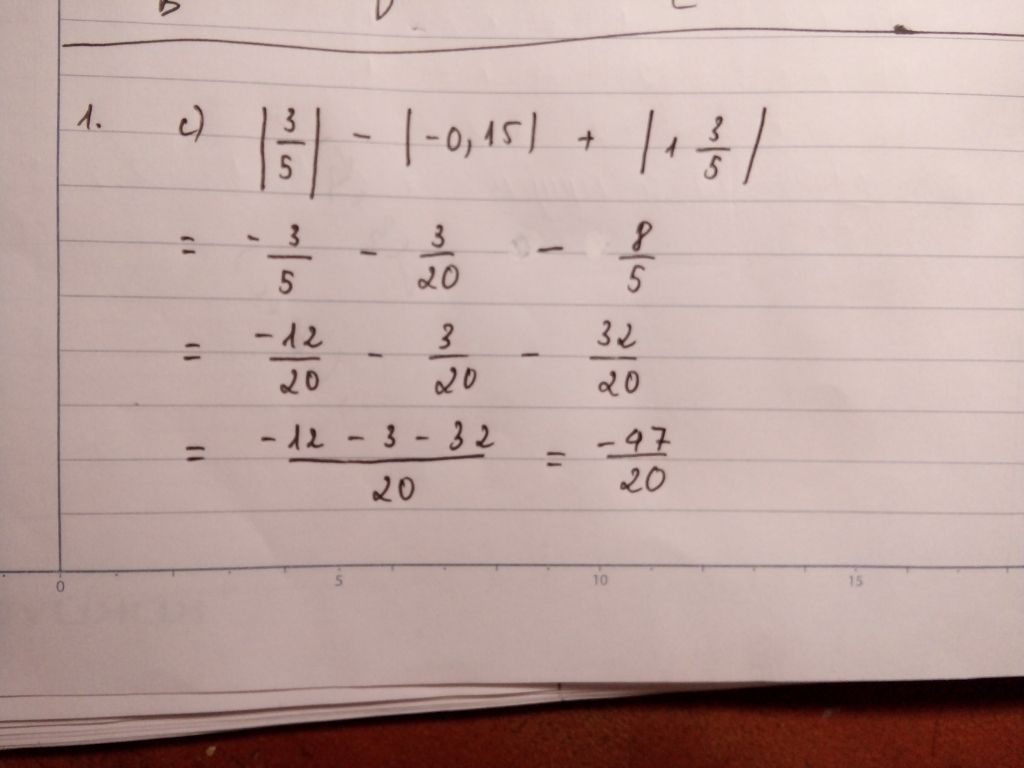 1. c) |3/5| - |-0,15| + |1 3/5|
= - 3/5 - 3/20 - 8/5
= -12/20 - 3/20 - 32/20
= (-12 - 3 - 32)/20 = -47/20
0 5 10 15